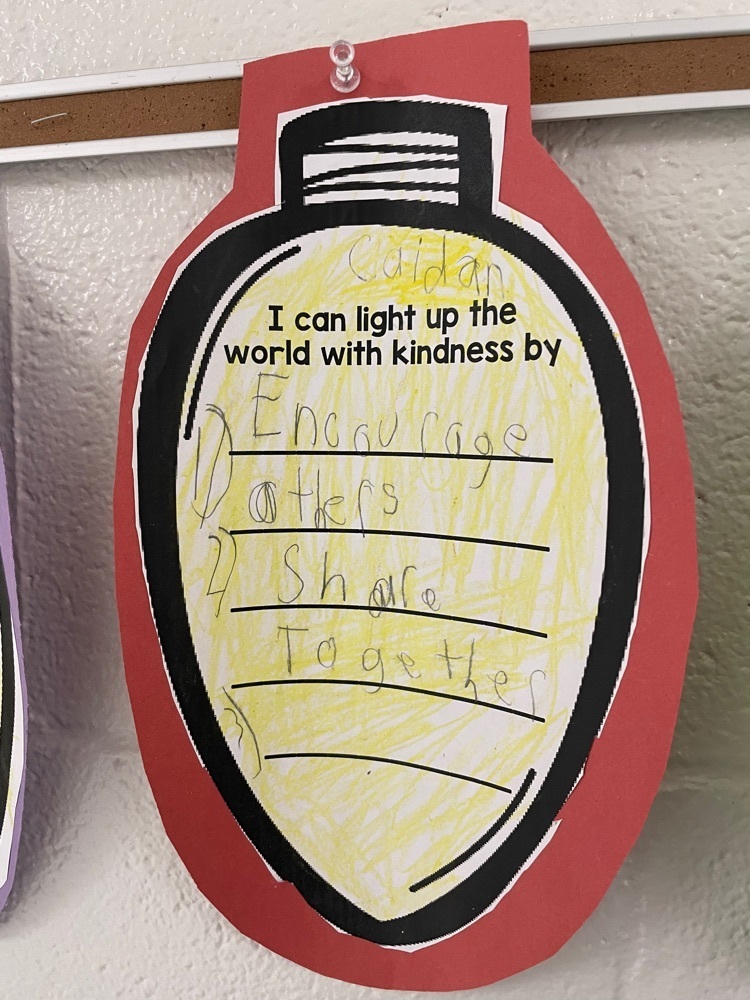 Caidan
I can light up the
world with kindness by
1) Encourage
others
2) Share
Together
3)